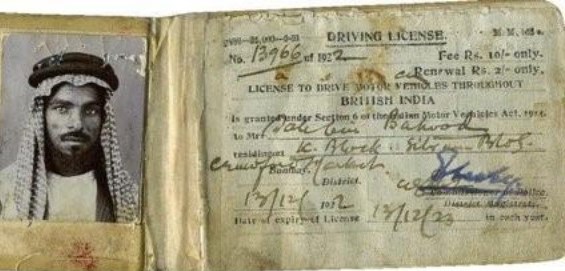 DRIVING LICENSE.
No. 13966 of 1922 Fee Rs. 10/- only.
Renerwal Rs. 2/- only.
LICENSE TO DRIVE MOTOR VEHICLES THROUGHOUT
BRITISH INDIA
is granted under Section 6 of the Indian Motor Vechicles Act, 1914.
to Mr.
residing at K. Block
Crawford Market
Bombay. District.
13/12/1922 District Magistrate.
Date of expiry of License 13/12/23 in each year.